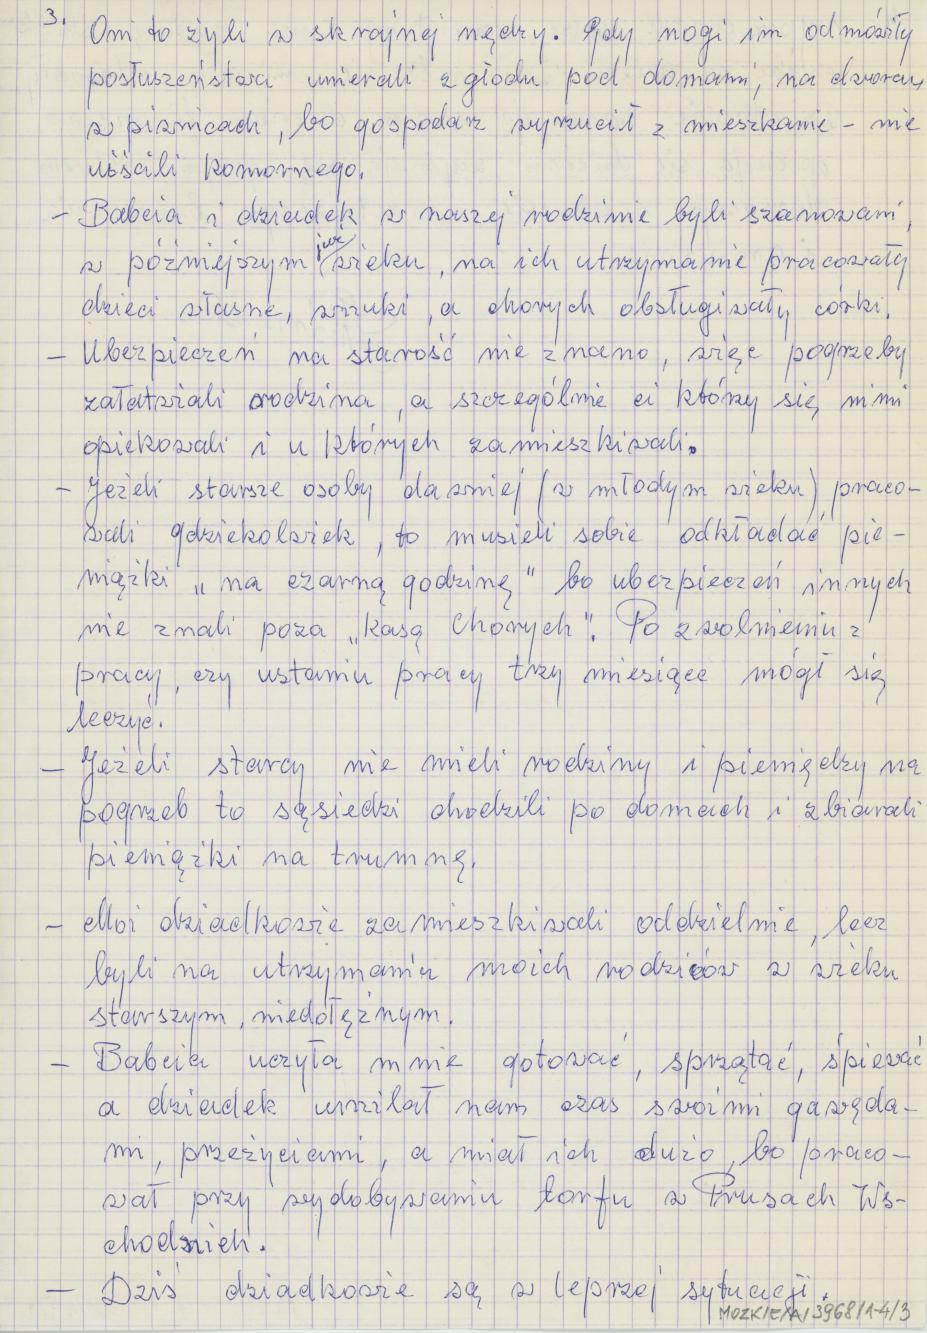 3.
Oni to żyli w skrajnej nędzy. Gdy nogi im odmówiły
posłuszeństwa umierali z głodu pod domami, na dworcu,
w piwnicach, bo gospodarz wyrzucił z mieszkanie - nie
uiścili komornego.
- Babcia i dziadek w naszej rodzinie byli szanowani,
w późniejszym już wieku, na ich utrzymanie pracowały
dzieci własne, wnuki, a chorych obsługiwały córki.
- Ubezpieczeń na starość nie znano, więc pogrzeby
załatwiali rodzina, a szczególnie ci którzy się nimi
opiekowali i u których zamieszkiwali.
- Jeżeli starsze osoby dawniej (w młodym wieku) praco-
wali gdziekolwiek, to musieli sobie odkładać pie-
niążki "na czarną godzinę" bo ubezpieczeń innych
nie znali poza "Kasą Chorych". Po zwolnieniu z
pracy, czy ustaniu pracy trzy miesiące mógł się
leczyć.
- Jeżeli starcy nie mieli rodziny i pieniędzy na
pogrzeb to sąsiedzi chodzili po domach i zbierali
pieniążki na trumnę.
- Moi dziadkowie zamieszkiwali oddzielnie, lecz
byli na utrzymaniu moich rodziców w wieku
starszym, niedołężnym.
- Babcia uczyła mnie gotować, sprzątać, śpiewać
a dziadek umilał nam czas swoimi gawęda-
mi, przeżyciami, a miał ich dużo, bo praco-
wał przy wydobywaniu torfu w Prusach Ws-
chodnich.
- Dziś dziadkowie są w lepszej sytuacji.
MOZK/E/A/3968/1-4/3